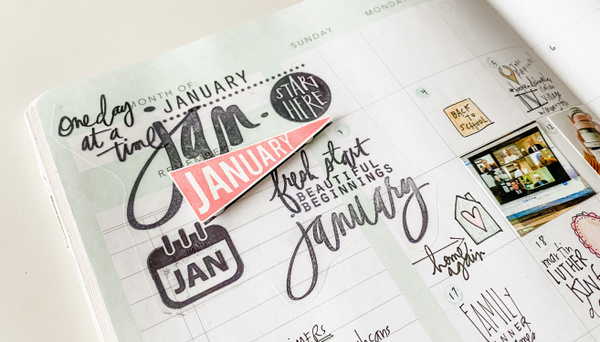 SUNDAY
MONDAY
MONTH OF:
JANUARY
one day
at a
time
Jan.
START
HERE
JANUARY
fresh start
BEAUTIFUL
BEGINNINGS
january
JAN
4
BACK
TO
SCHOOL
home
again
6
12
17
FAMILY
18
martin
LUTHER
KING